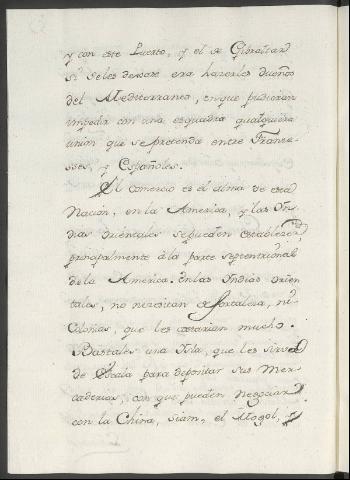 y con este Puerto, y el de Gibraltar
si seles dexase era hazerles dueños
del Mediterraneo, en que pudieran
impedir con una esquadra qualquiera
union que se pretenda entre France-
ses, y Españoles.
El comercio es el alma de esta
Nacion, en la America, y las In-
dias orientales se pueden establecer,
principalmente á la parte septentrional
de la America. En las Indias orien
tales, no nezesitan de fortaleza, ni
Colonias, que les costarian mucho.
Bastales una Isla, que les sirva
de Escala para depositar sus Mer-
caderias, con que pueden negociar
con la China, Siam, el Mogol, y